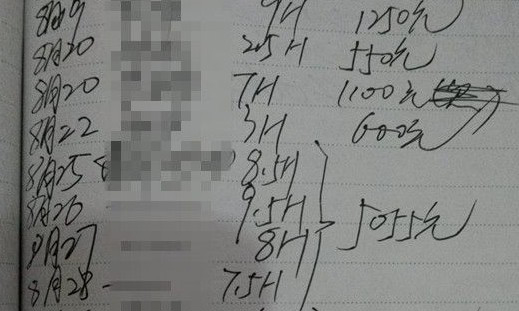 8月19 9H 1250元
8月20 2.5H 550元
8月20 7H 1100元
8月22 3H 600元
8月25 8.5H
8月26 9.5H 5055元
8月27 8H
8月28 7.5H